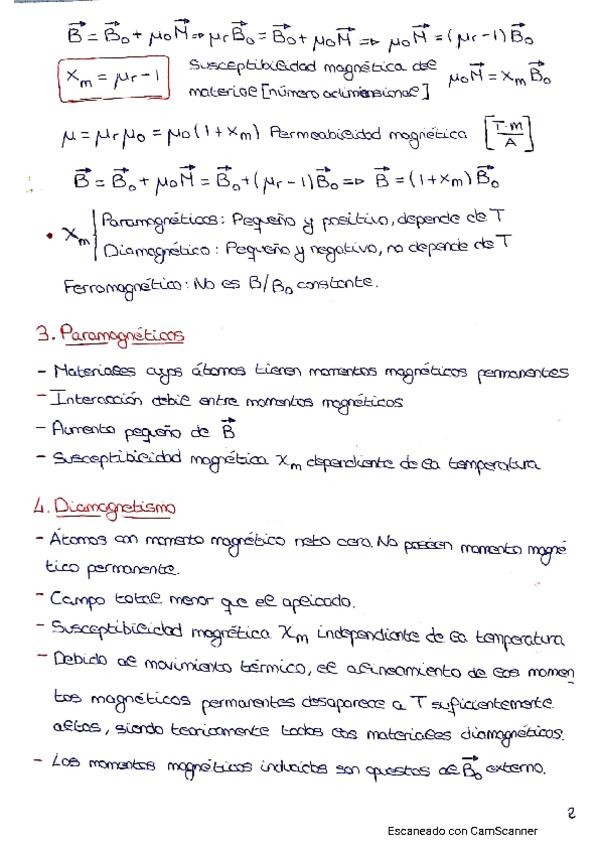 B⃗ = B⃗₀ + μ₀M⃗ ⇒ μrB⃗₀ = B⃗₀ + μ₀M⃗ ⇒ μ₀M⃗ = (μr − 1)B⃗₀
Xm = μr − 1 Susceptibilidad magnética del material [número adimensional] μ₀M⃗ = XmB⃗₀
μ = μrμ₀ = μ₀(1 + Xm) Permeabilidad magnética [T·m/A]
B⃗ = B⃗₀ + μ₀M⃗ = B⃗₀ + (μr − 1)B⃗₀ ⇒ B⃗ = (1 + Xm)B⃗₀
• Xm | Paramagnéticos: Pequeño y positivo, depende de T
Diamagnético: Pequeño y negativo, no depende de T
Ferromagnético: No es B/B₀ constante.
3. Paramagnéticos
- Materiales cuyos átomos tienen momentos magnéticos permanentes
- Interacción débil entre momentos magnéticos
- Aumento pequeño de B⃗
- Susceptibilidad magnética Xm dependiente de la temperatura
4. Diamagnetismo
- Átomos con momento magnético neto cero. No poseen momento magné
tico permanente.
- Campo total menor que el aplicado.
- Susceptibilidad magnética Xm independiente de la temperatura
- Debido al movimiento térmico, el alineamiento de los momen
tos magnéticos permanentes desaparece a T suficientemente
altas, siendo teoricamente todos los materiales diamagnéticos.
- Los momentos magnéticos inducidos son opuestos al B⃗₀ externo.
2
Escaneado con CamScanner